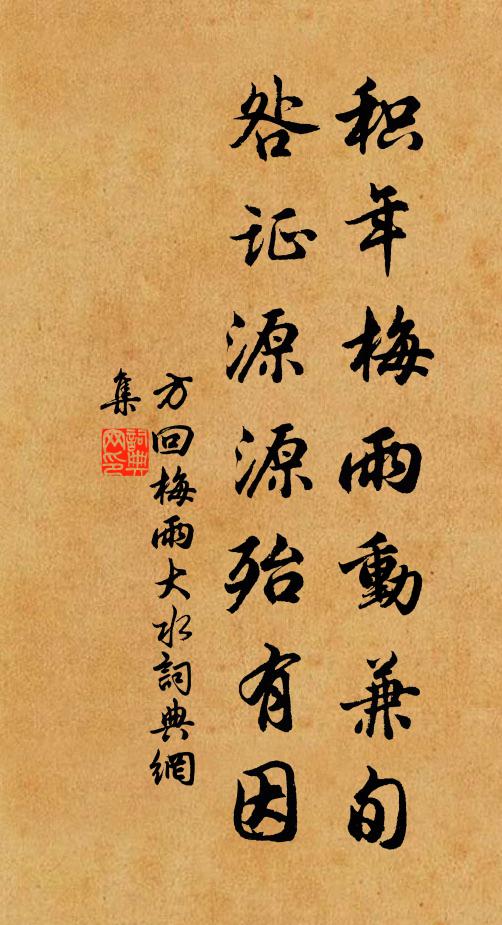 积年梅雨動兼旬
咎证源源殆有因
方回梅雨大水詞典網
集
詞典網印